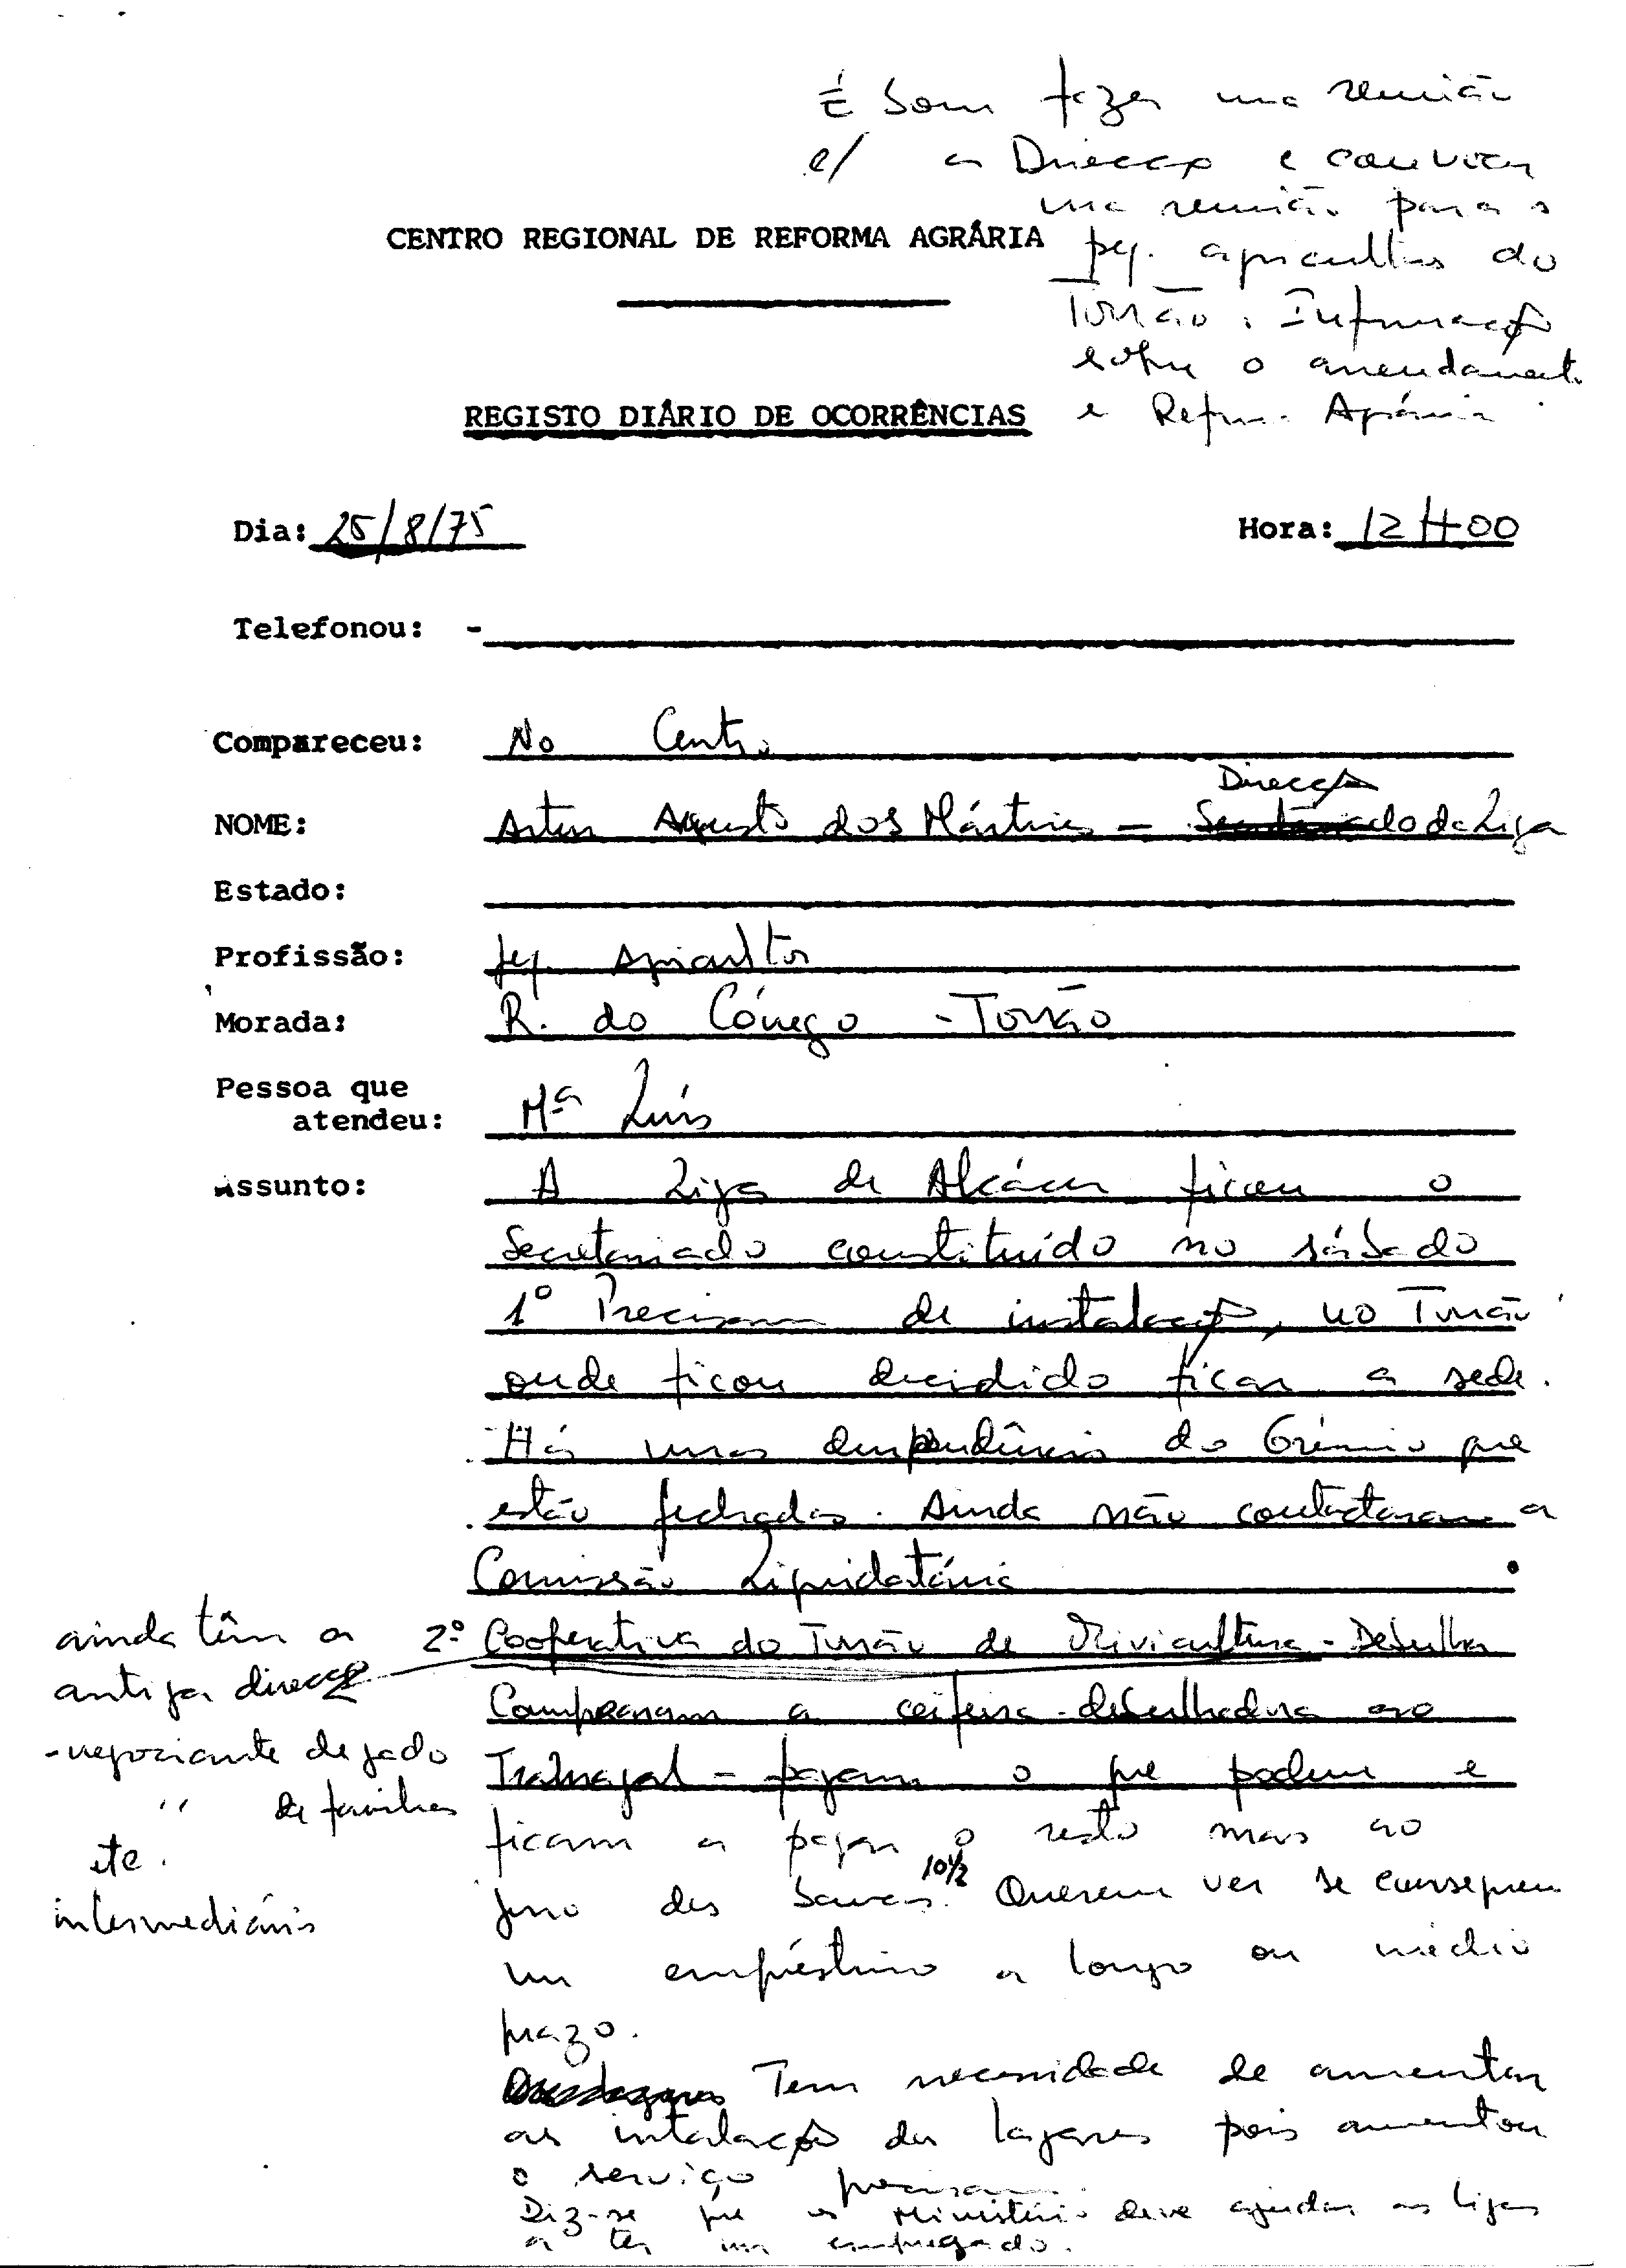 É bom fazer uma reunião
c/ a Direcção e convocar
uma reunião para o
CENTRO REGIONAL DE REFORMA AGRÁRIA
peq. agricultores do
Torrão. Informação
sobre o arrendamento
e Reforma Agrária.
REGISTO DIÁRIO DE OCORRÊNCIAS
Dia: 25/8/75 Hora: 12H00
Telefonou: -
Compareceu: No Centro
Direcção
NOME: Artur Augusto dos Mártires - Secretariado da Liga
Estado:
Profissão: Peq. Agricultor
Morada: R. do Cónego - Torrão
Pessoa que
atendeu: Mª Luís
Assunto: A Liga de Alcácer ficou o
Secretariado constituído no sábado
1º Precisam de instalação, no Torrão
onde ficou decidido ficar a sede.
Há umas dependências do Grémio que
estão fechadas. Ainda não contactaram a
Comissão Liquidatária
2º Cooperativa do Torrão de Olivicultura - Debulha
ainda têm a
antiga direcção
- negociante de gado
" de farinhas
etc.
intermediários
Compraram a ceifeira-debulhadora ao
Tramagal - pagam o que podem e
ficam a pagar o resto mas ao
juro dos bancos. 10½ Querem ver se conseguem
um empréstimo a longo ou médio
prazo.
Tem necessidade de aumentar
as intalação dos lagares pois aumentou
o serviço
Diz-se que o Ministério deve ajudar as ligas
a ter um empregado.